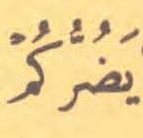 يَضُرُّكُمْ